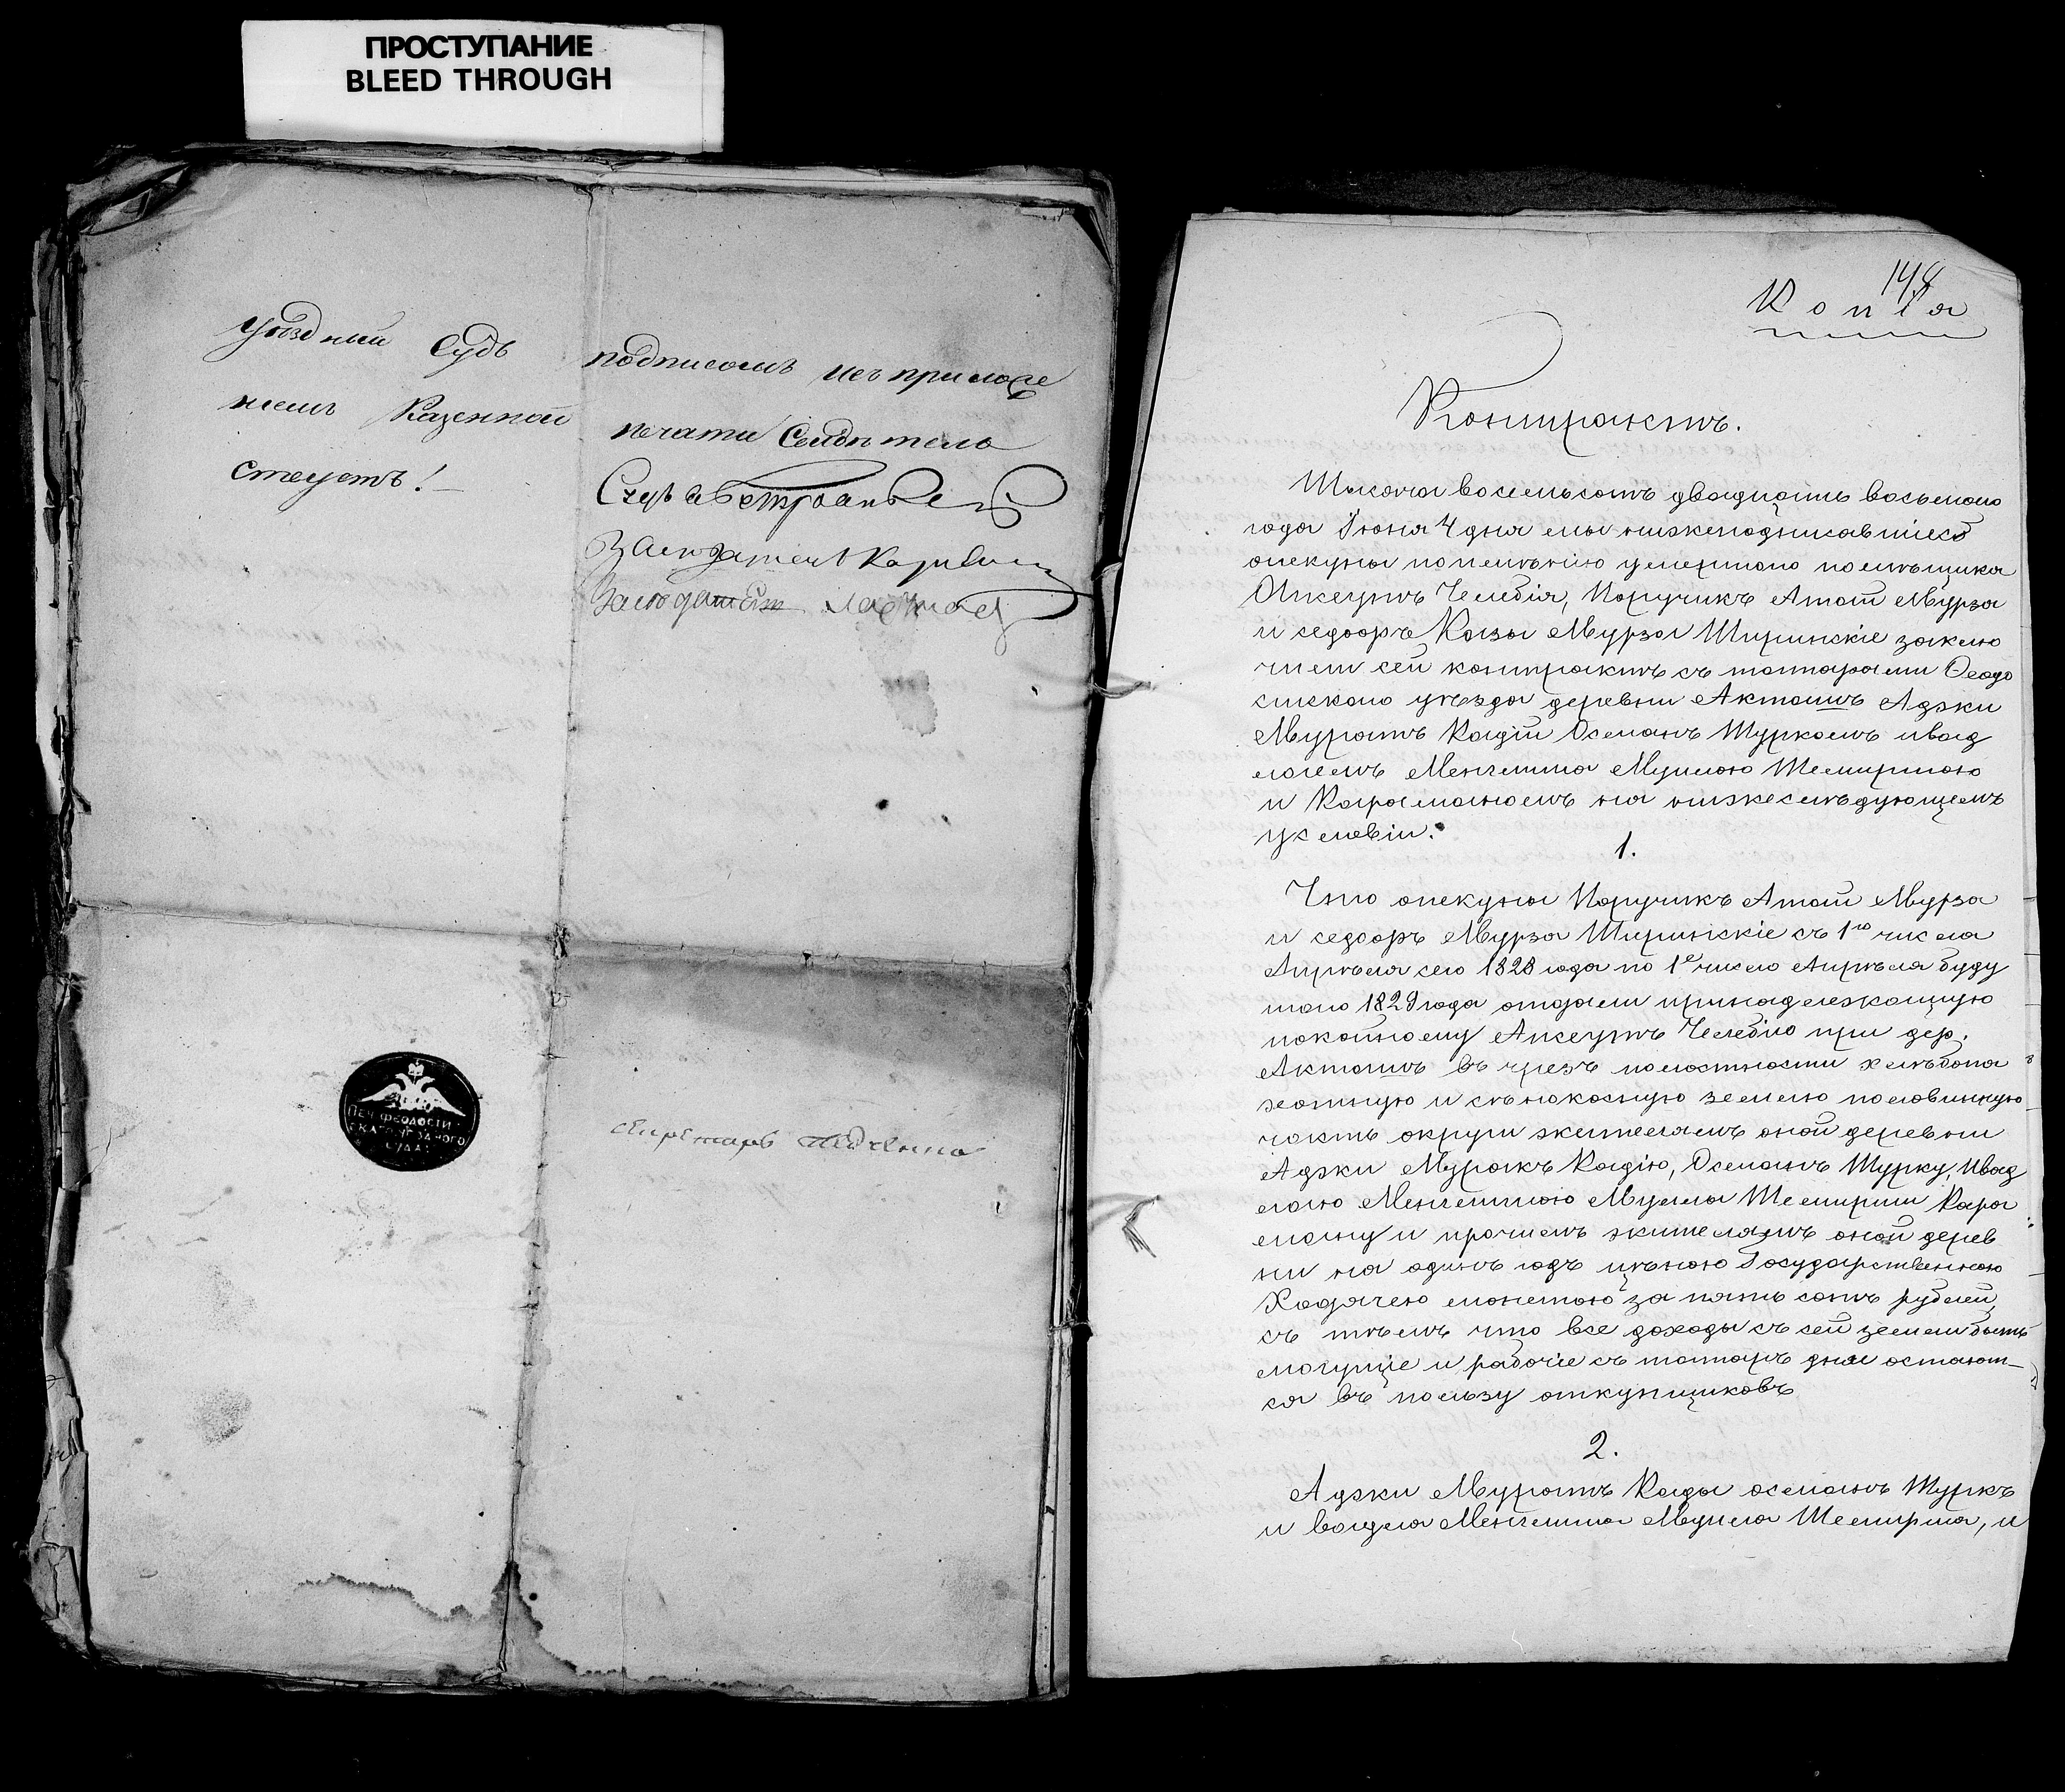 ПРОСТУПАНИЕ
BLEED THROUGH
уѣздный Судъ подписомъ исъ приложе
ниемъ Казенной печати Свидѣтель
ствуетъ!
Секретарь
ПЕЧ. ФЕОДОСІЙ
СКАГО УѢЗДНОГО
СУДА
148
Копія
Контрактъ.
Тысяча восемьсотъ двадцать восьмаго
года Іюня 4 дня мы нижеподписавшіесъ
опекуны по имѣнію умершаго помѣщика
Апсеутъ Челебія, Поручикъ Атай Мурза
и седооръ Казы Мурза Ширинскіе заклю
чили сей контрактъ съ татарами Ѳеодо
сійскаго уѣзда деревни Акташъ Аджи
Муратъ Кадій Османъ Туркомъ и вад
лаемъ Менглиша Муллою Темиршою
и Караманомъ на нижеслѣдующемъ
условіи.
1.
Что опекуны Поручикъ Атай Мурза
и седооръ Мурза Ширинскіе съ 1го числа
Апрѣля сего 1828 года по 1е число Апрѣля буду
щаго 1829 года отдали принадлежащую
покойному Апсеутъ Челебію при дер.
Акташъ въ чрезъ полостности хлѣбопа
хотную и сѣнокосную землю половинную
часть округи жителямъ оной деревни
Аджи Муракъ Кадію, Османъ Турку, Ивад
лаю Менглишою Мулла Темирши Кара
ману и прочимъ жителямъ оной дерев
ни на одинъ годъ цѣною Государственною
Ходячею монетою за пять сотъ рублей,
съ тѣмъ что все доходы съ сей земли быть
могущіе и рабочіе съ татаръ дни остают-
ся въ пользу откупщиковъ
2.
Аджи Муратъ Кады османъ Туркъ
и вадла Менглиша Мулла Темирша, и